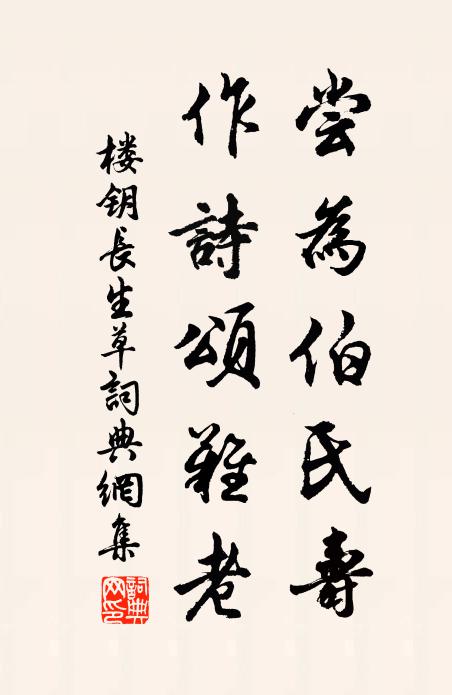 尝為伯氏壽
作詩頌難老
楼钥長生草詞典網集
詞典網印